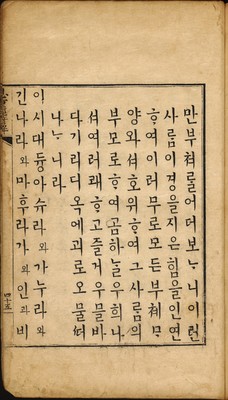 만부쳐를어더보ᄂᆞ니이런
사ᄅᆞᆷ이경을지은힘을인연
ᄒᆞ여이러무로모든부쳐ᄆᆞ
양와셔호위ᄒᆞ여그사ᄅᆞᆷ의
부모로ᄒᆞ여곰하ᄂᆞᆯ우희나
셔여러쾌ᄒᆞ고즐거우믈바
다기리디옥에괴로오믈ᄯᅥ
나ᄂᆞ니라
이시대듕아슈라와가누라와
긴나라와마후라가와인과비
四十五